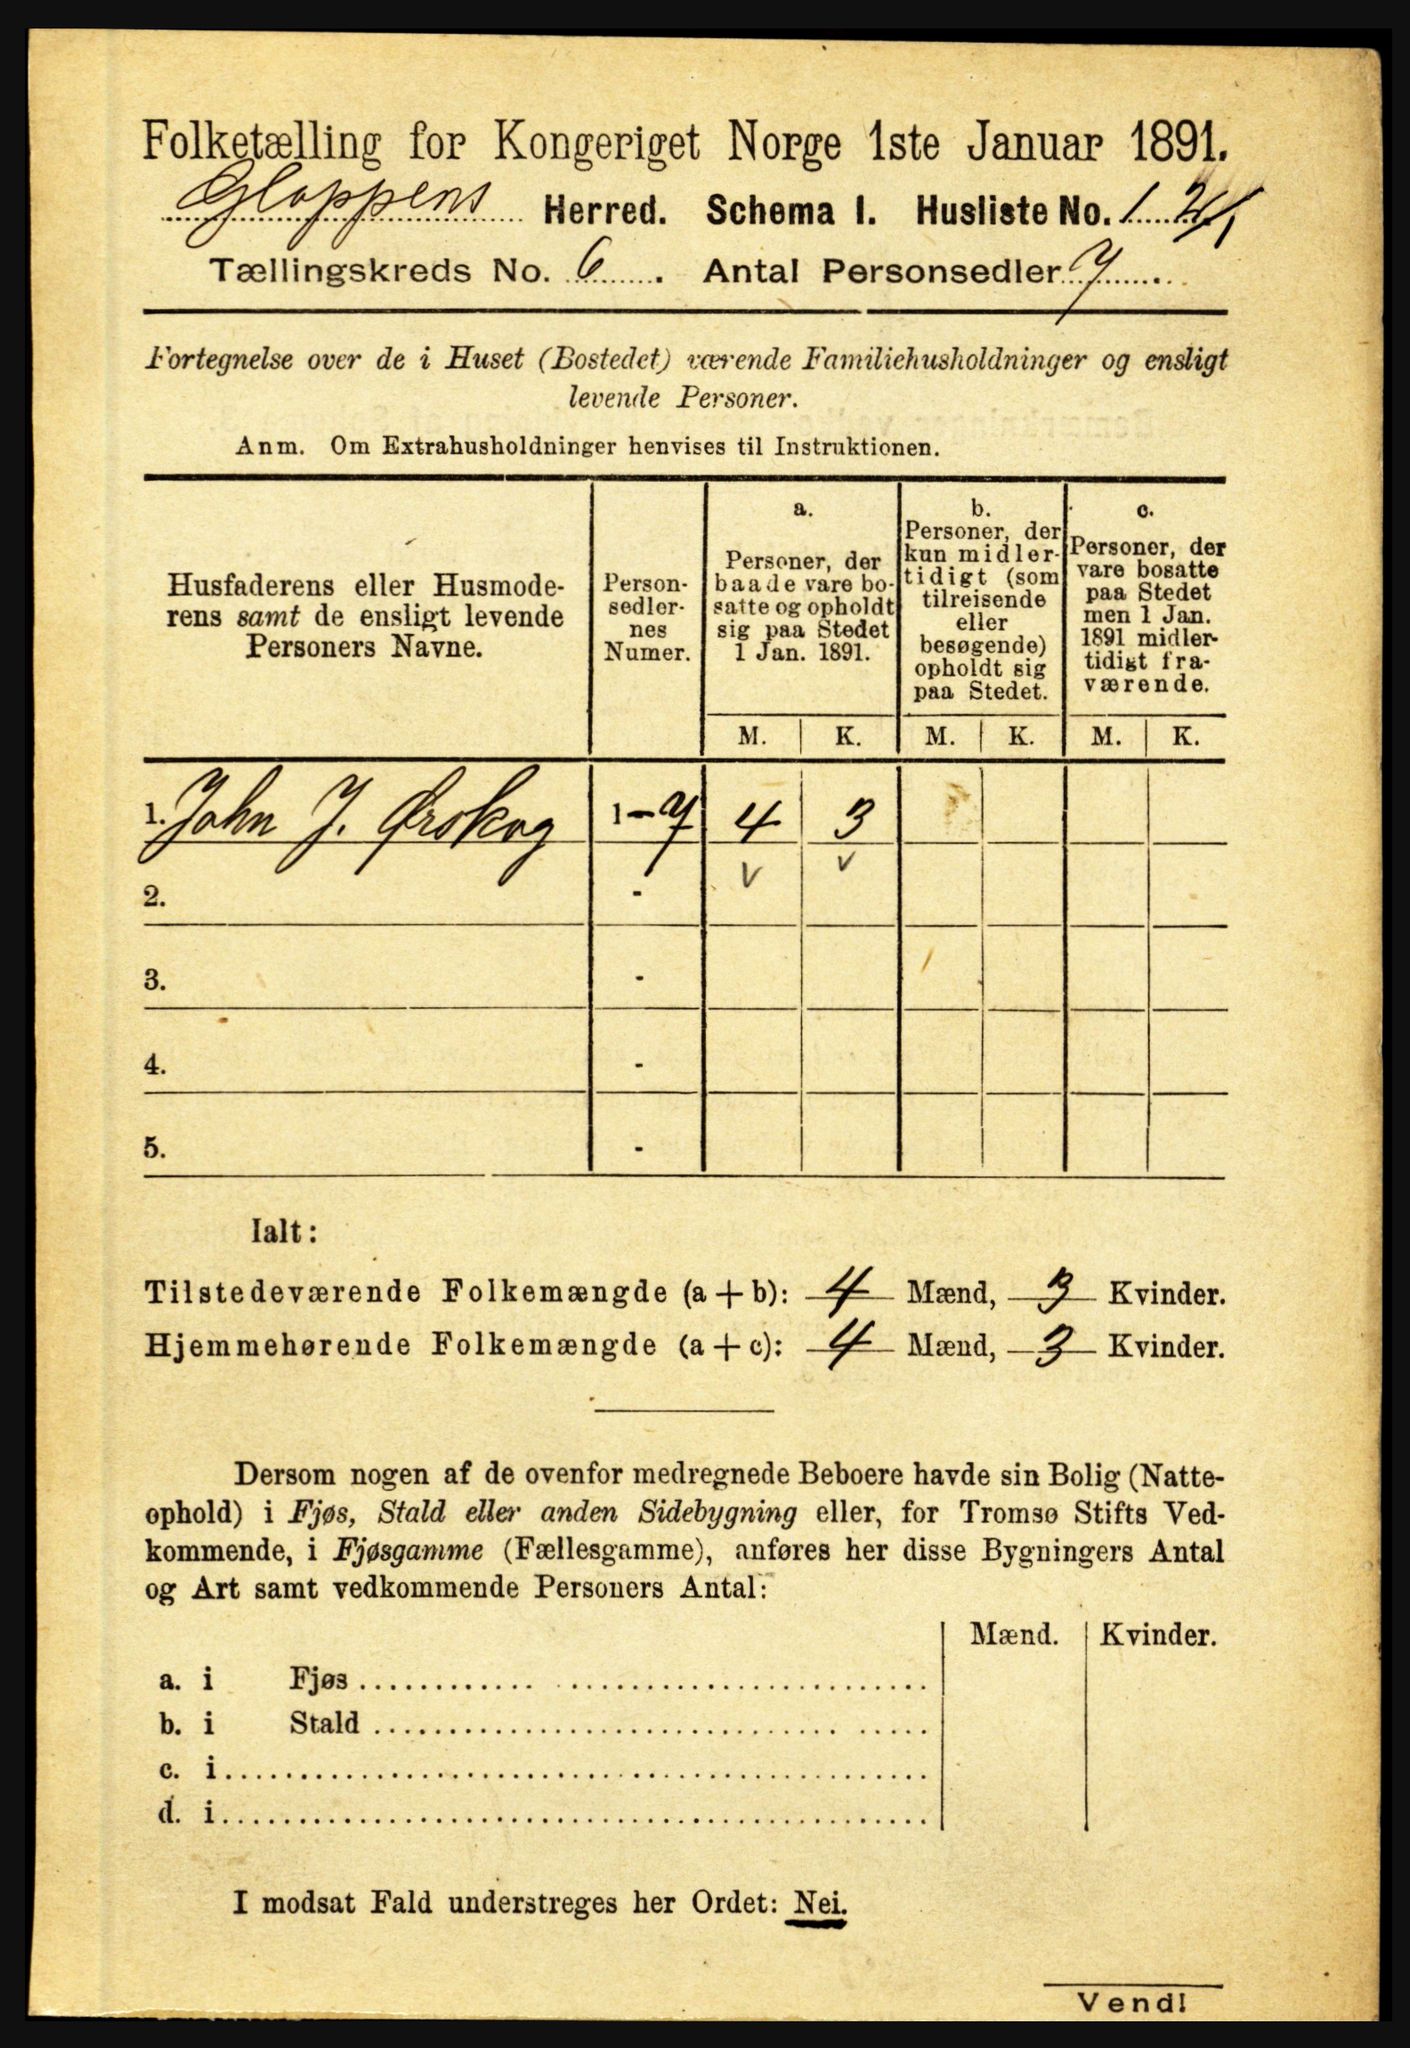 Folketælling for Kongeriget Norge 1ste Januar 1891.
Gloppens Herred. Schema I. Husliste No. 1
Tællingskreds No. 6. Antal Personsedler 7
Fortegnelse over de i Huset (Bostedet) værende Familiehusholdninger og ensligt
levende Personer.
Anm. Om Extrahusholdninger henvises til Instruktionen.
Husfaderens eller Husmode-
rens samt de ensligt levende
Personers Navne.
Person-
sedler-
nes
Numer.
a.
Personer, der
baade vare bo-
satte og opholdt
sig paa Stedet
1 Jan. 1891.
b.
Personer, der
kun midler-
tidigt (som
tilreisende
eller
besøgende)
opholdt sig
paa Stedet.
c.
Personer, der
vare bosatte
paa Stedet
men 1 Jan.
1891 midler-
tidigt fra-
værende.
M. K. M. K. M. K.
1. John J. Ørskog 1-7 4 3
v v
2. -
3. -
4. -
5. -
Ialt:
Tilstedeværende Folkemængde (a+b): 4 Mænd, 3 Kvinder.
Hjemmehørende Folkemængde (a+c): 4 Mænd, 3 Kvinder.
Dersom nogen af de ovenfor medregnede Beboere havde sin Bolig (Natte-
ophold) i Fjøs, Stald eller anden Sidebygning eller, for Tromsø Stifts Ved-
kommende, i Fjøsgamme (Fællesgamme), anføres her disse Bygningers Antal
og Art samt vedkommende Personers Antal:
Mænd. Kvinder.
a. i Fjøs
b. i Stald
c. i
d. i
I modsat Fald understreges her Ordet: Nei.
Vend!